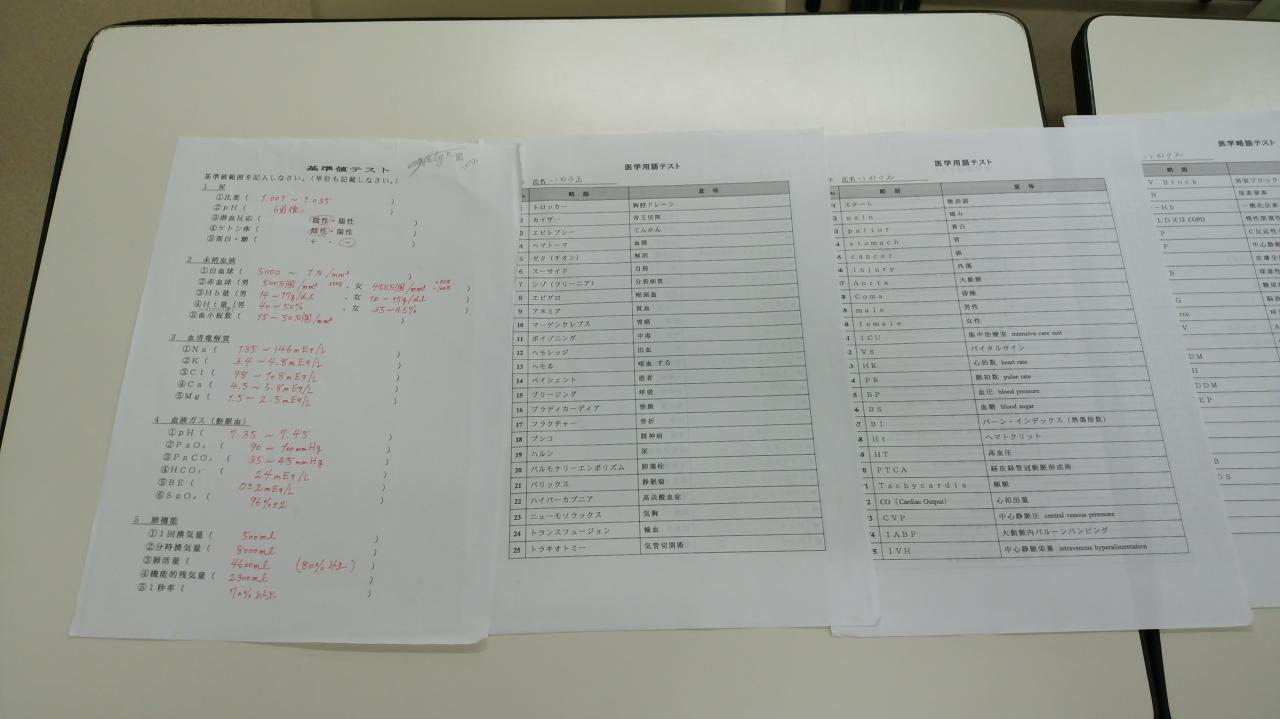 基準値テスト
基準値範囲を記入しなさい。(単位も記載しなさい。)
1 尿
①比重( 1.001 ~ 1.035 )
②pH( 6前後 )
③潜血反応( 陰性・陽性 )
④ケトン体( 陰性・陽性 )
⑤蛋白・糖( + ・ - )
2 末梢血液
①白血球( 5000 ~ 1万/mm³ )
②赤血球(男 500万個/mm³ 、女 450万個/mm³ )
③Hb量(男 14~17g/dl 、女 12~15g/dl )
④Ht量(男 40~50% 、女 35~45% )
⑤血小板数( 15~30万個/mm³ )
3 血清電解質
①Na( 135~146mEq/L )
②K( 3.4~4.8mEq/L )
③Cl( 98~108mEq/L )
④Ca( 4.5~5.8mEq/L )
⑤Mg( 1.5~2.5mEq/L )
4 血液ガス(動脈血)
①pH( 7.35~7.45 )
②PaO₂( 90~100mmHg )
③PaCO₂( 35~45mmHg )
④HCO₃⁻( 24mEq/L )
⑤BE( 0±2mEq/L )
⑥SaO₂( 96%±2 )
5 肺機能
①1回換気量( 500ml )
②分時換気量( 8000ml )
③肺活量( 4600ml (80%以上) )
④機能的残気量( 2300ml )
⑤1秒率( 70%以上 )
医学用語テスト
氏名
略語 意味
1 トロッカー 胸腔ドレーン
2 カイザー 帝王切開
3 エピレプシー てんかん
4 ヘマトーマ 血腫
5 ゼク(チオン) 解剖
6 スーサイド 自殺
7 シゾ(フリーニア) 分裂病質
8 エピグロ 喉頭蓋
9 アネミア 貧血
10 マーゲンクレブス 胃癌
11 ポイゾニング 中毒
12 ヘモレッジ 出血
13 ヘモる 喀血する
14 ペイシェント 患者
15 ブリージング 呼吸
16 ブラディカーディア 徐脈
17 フラクチャー 骨折
18 プシコ 精神病
19 ハルン 尿
20 パルモナリーエンボリズム 肺塞栓
21 バリックス 静脈瘤
22 ハイパーカプニア 高炭酸血症
23 ニューモソラックス 気胸
24 トランスフュージョン 輸血
25 トラキオトミー 気管切開術
医学用語テスト
氏名
略語 意味
1 ステート 聴診器
2 pain 痛み
3 pallor 蒼白
4 stomach 胃
5 cancer 癌
6 injury 外傷
7 Aorta 大動脈
8 Coma 昏睡
9 male 男性
0 female 女性
1 ICU 集中治療室 intensive care unit
2 VS バイタルサイン
3 HR 心拍数 heart rate
4 PR 脈拍数 pulse rate
5 BP 血圧 blood pressure
6 BS 血糖 blood sugar
7 BI バーン・インデックス(熱傷指数)
8 Ht ヘマトクリット
9 HT 高血圧
0 PTCA 経皮経管冠動脈形成術
1 Tachycardia 頻脈
2 CO (Cardiac Output) 心拍出量
3 CVP 中心静脈圧 central venous prressure
4 IABP 大動脈内バルーンパンピング
5 IVH 中心静脈栄養 intravenous hyperalimentation
医学略語テスト
略語
V Block 房室ブロック
N 尿素窒素
-Hb 一酸化炭素
LD又はCOPD 慢性閉塞
P C反応性
P 中心静脈
B
G
V
DM
H
DDM
EP
B
OS